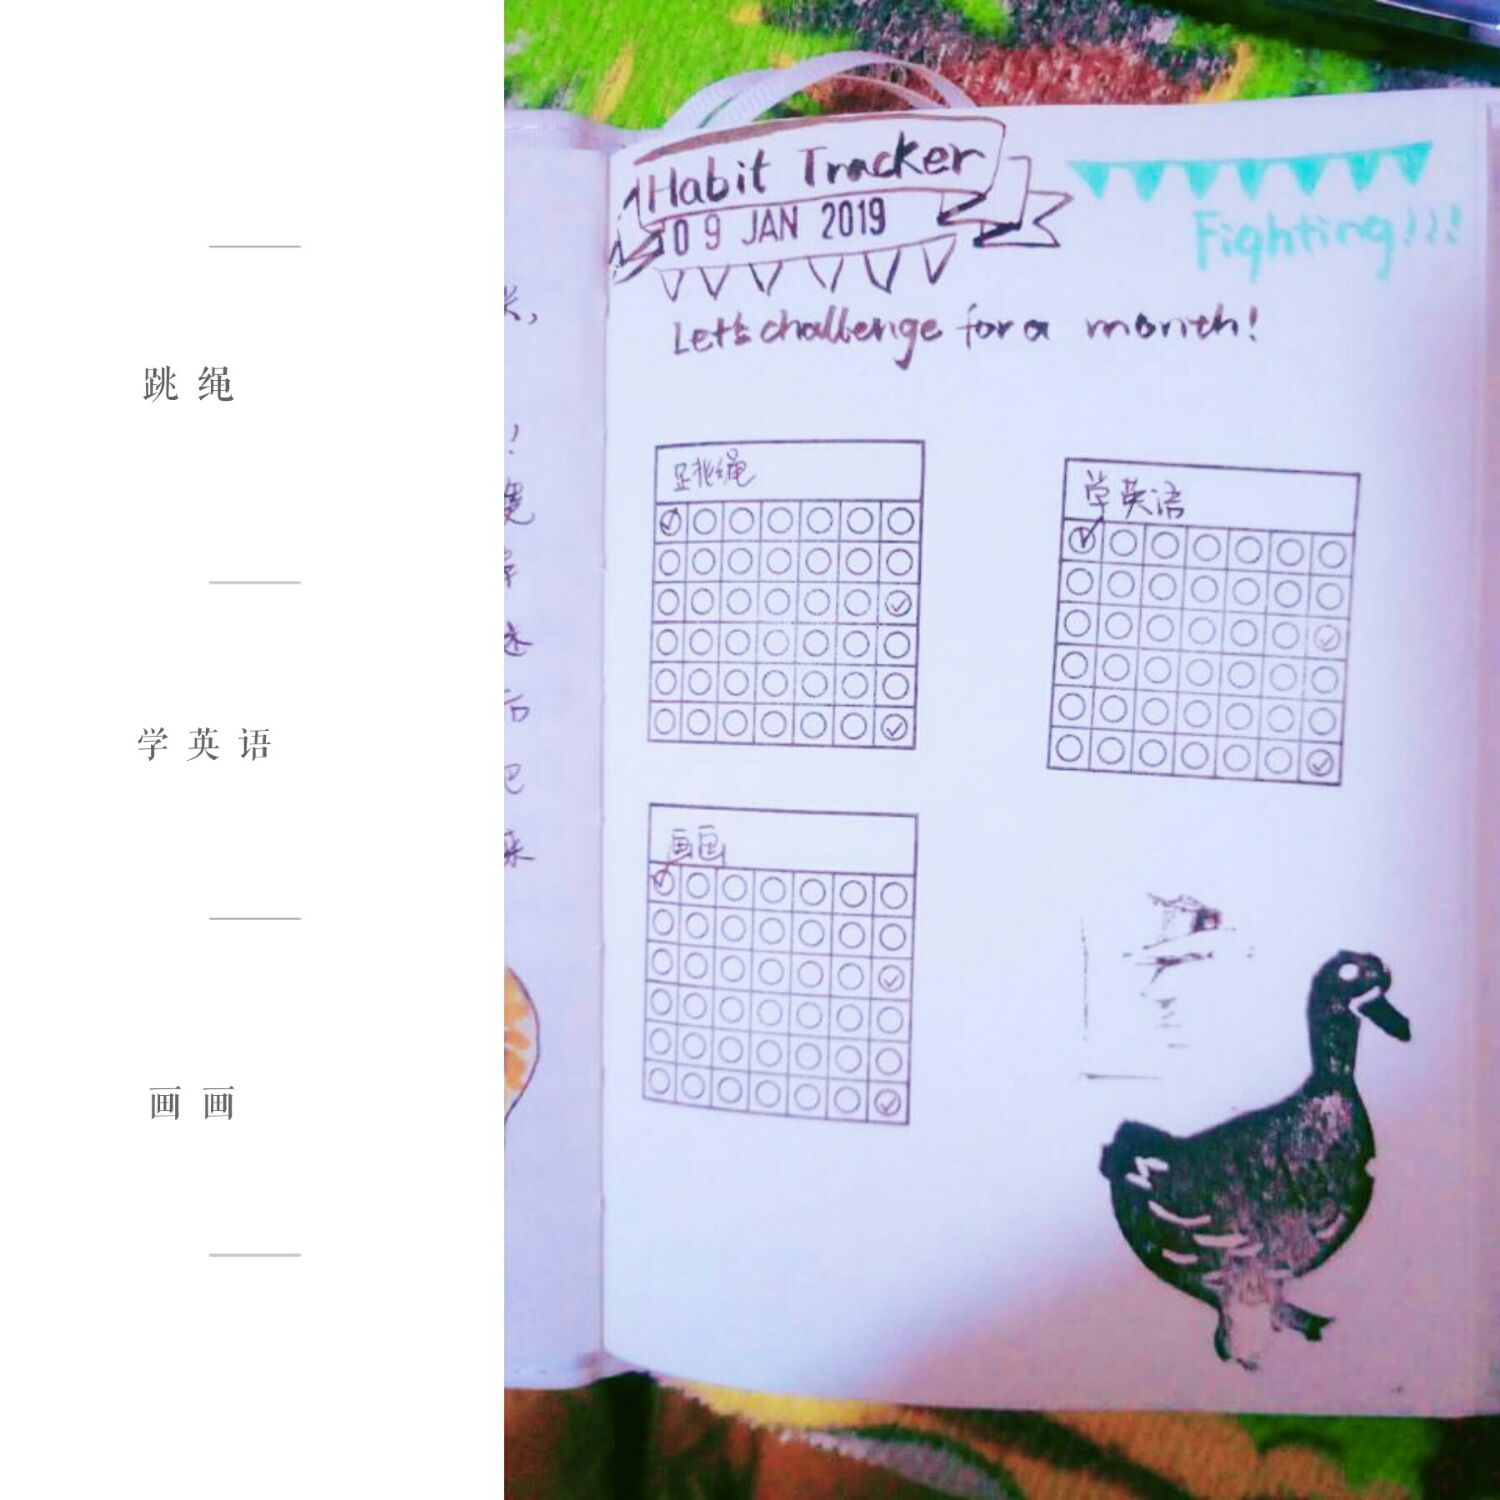 跳绳
学英语
画画
Habit Tracker
09 JAN 2019
Fighting!!!
Let's challenge for a month!
跳绳
学英语
画画